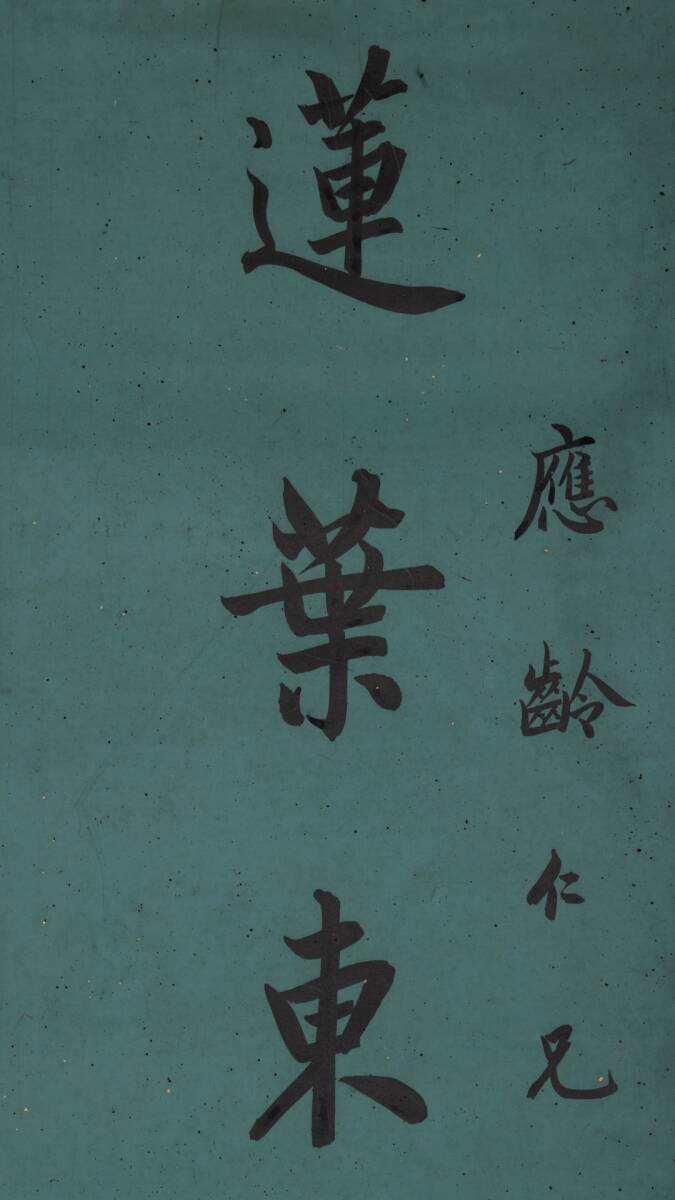 應齡仁兄
蓮葉東